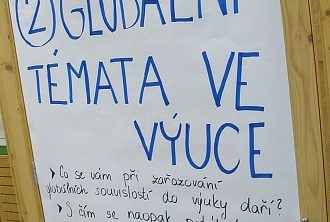 ② GLOBÁLNÍ
TÉMATA VE
VÝUCE
➤ Co se vám při zařazování
globálních souvislostí do výuky daří?
➤ S čím se naopak